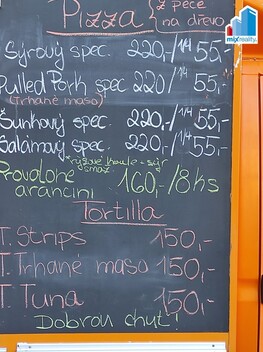 Pizza z pece
na dřevo
mixreality
Sýrový spec. 220,-/¼ 55,-
Pulled Pork spec 220/ ¼ 55,-
(Trhané maso)
Šunkový spec. 220,-/¼ 55,-
Salámový spec. 220,-/¼ 55,-
rýžové koule - sýr
Provolone smaž
arancini 160,-/8ks
Tortilla
T. Strips 150,-
T. Trhané maso 150,-
T. Tuna 150,-
Dobrou chuť!